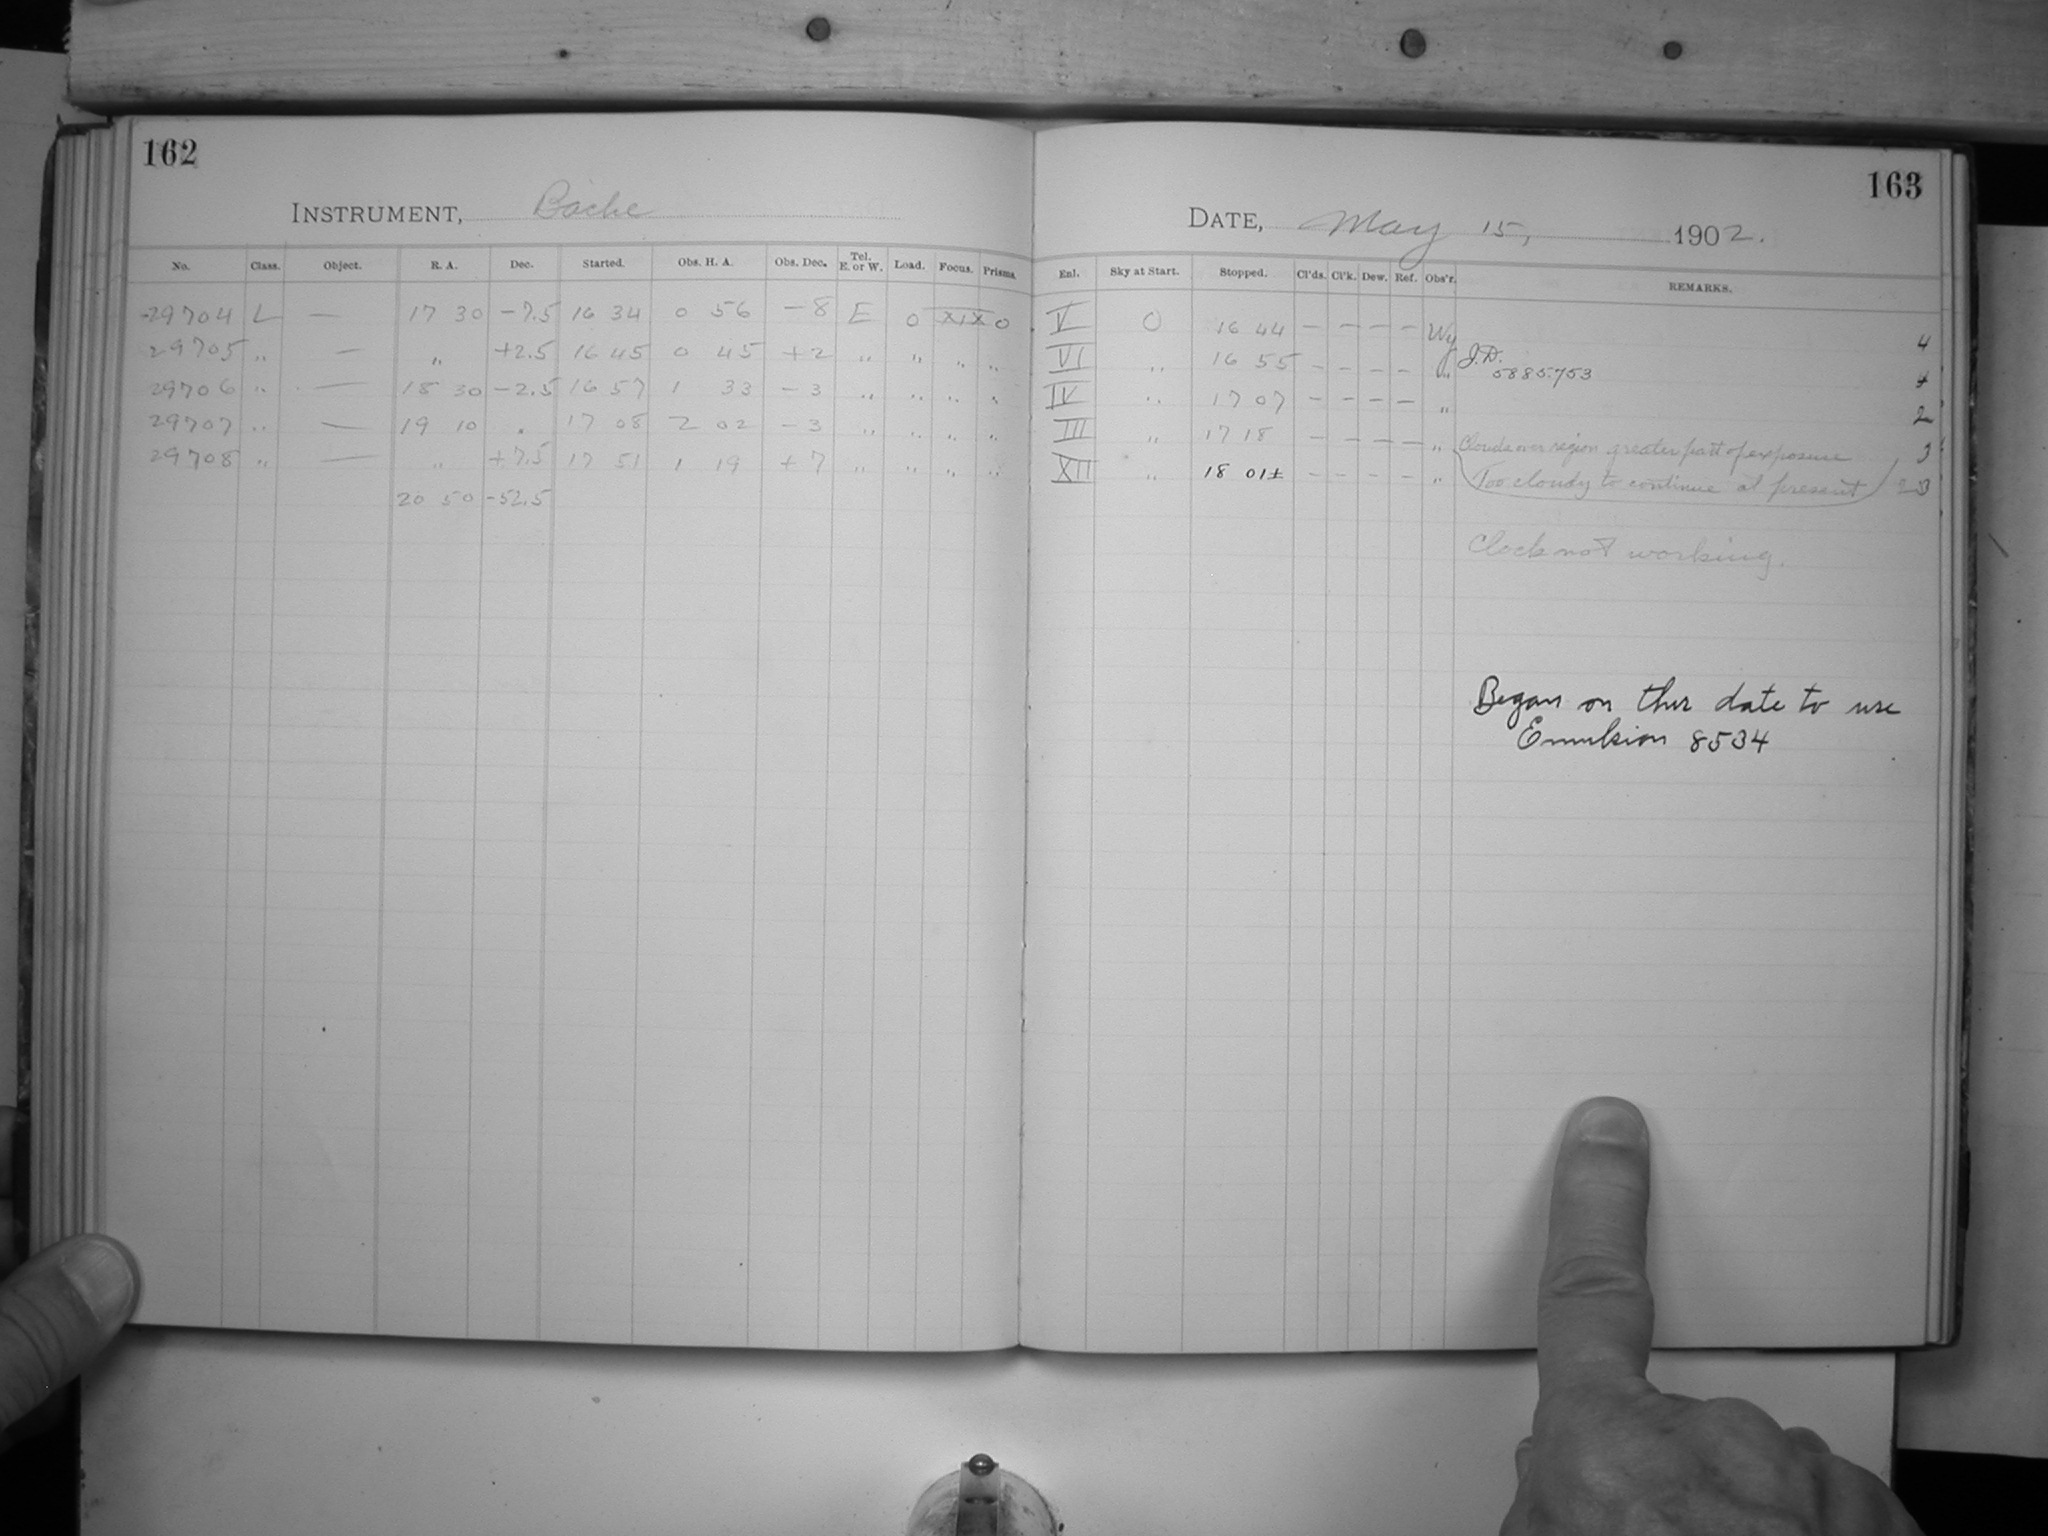 162
INSTRUMENT, Bache
No. Class. Object. R. A. Dec. Started. Obs. H. A. Obs. Dec. Tel. E. or W. Load. Focus. Prisms.
29704 L — 17 30 −7.5 16 34 0 56 −8 E 0 XIX 0
29705 " — " +2.5 16 45 0 45 +2 " " " "
29706 " — 18 30 −2.5 16 57 1 33 −3 " " " "
29707 " — 19 10 " 17 08 2 02 −3 " " " "
29708 " — " +7.5 17 51 1 19 +7 " " " "
20 50 −52.5
163
DATE, May 15, 1902.
Enl. Sky at Start. Stopped. Cl'ds. Cl'k. Dew. Ref. Obs'r. REMARKS.
V 0 16 44 — — — — Wy 4
VI " 16 55 — — — — " J.D. 5885.753 4
IV " 17 07 — — — — " 2
III " 17 18 — — — — " Clouds over region greater part of exposure 3
XII " 18 01± — — — — " Too cloudy to continue at present
Clock not working.
Began on this date to use
Emulsion 8534